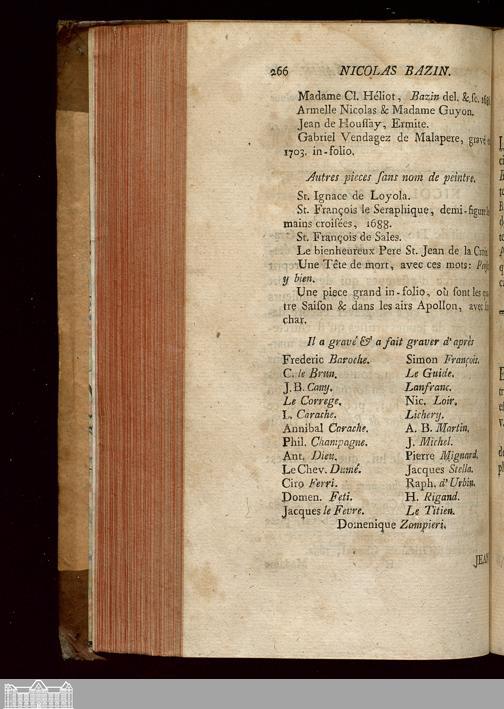 266 NICOLAS BAZIN.
Madame Cl. Héliot, Bazin del. & sc.
Armelle Nicolas & Madame Guyon.
Jean de Houſſay, Ermite.
Gabriel Vendagez de Malapere, gravé
1703. in-folio.
Autres pieces ſans nom de peintre.
St. Ignace de Loyola.
St. François le Seraphique, demi-figure
mains croiſées, 1688.
St. François de Sales.
Le bienheureux Pere St. Jean de la Croix
Une Tête de mort, avec ces mots:
y bien.
Une piece grand in-folio, où ſont les
tre Saiſon & dans les airs Apollon, avec
char.
Il a gravé & a fait graver d'après
Frederic Baroche. Simon François.
C. le Brun. Le Guide.
J. B. Cany. Lanfranc.
Le Correge. Nic. Loir.
L. Carache. Lichery.
Annibal Carache. A. B. Martin.
Phil. Champagne. J. Michel.
Ant. Dieu. Pierre Mignard.
Le Chev. Dumé. Jacques Stella.
Ciro Ferri. Raph. d'Urbin.
Domen. Feti. H. Rigand.
Jacques le Fevre. Le Titien.
Domenique Zompieri.
JEAN